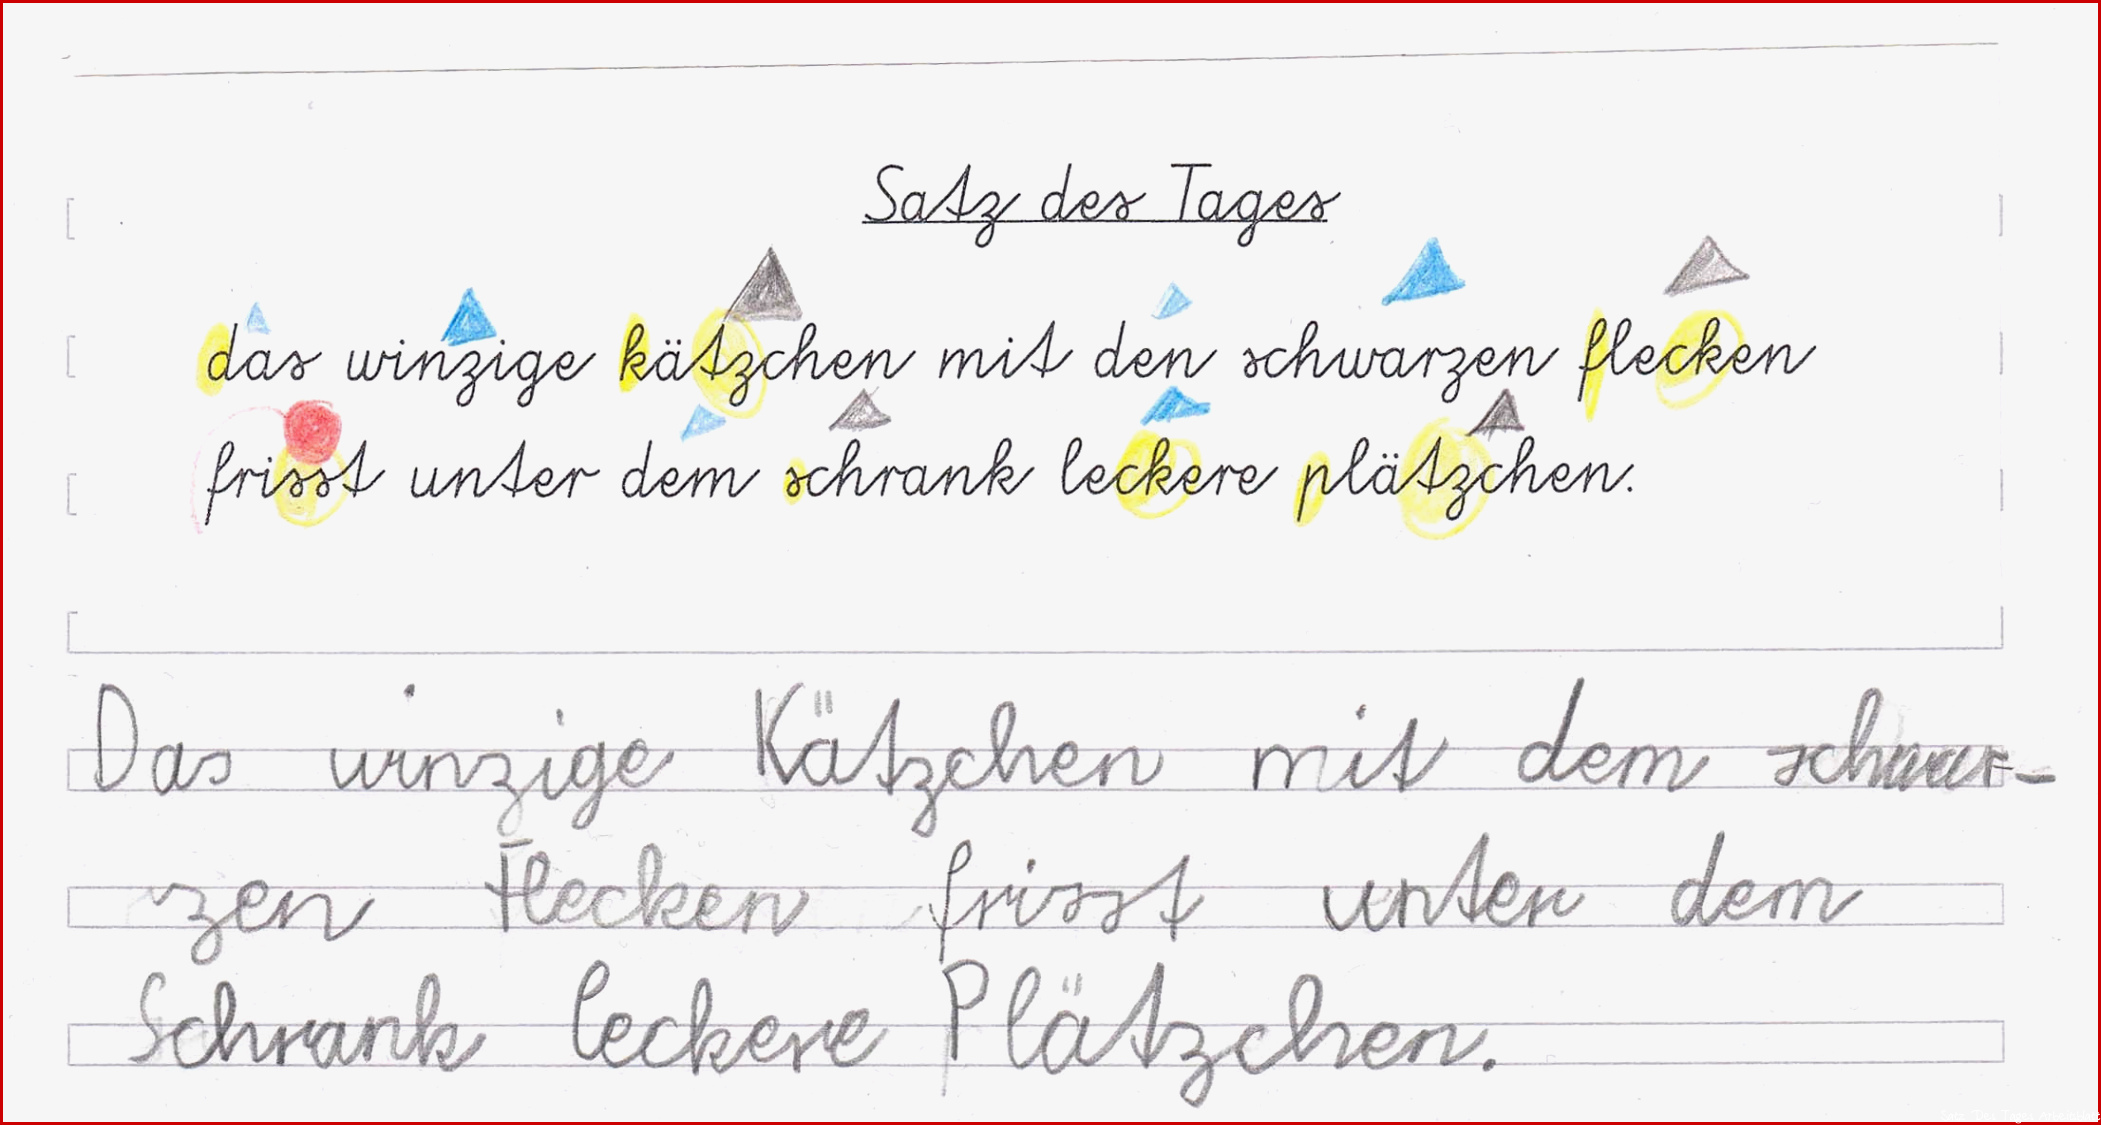 Satz des Tages
das winzige kätzchen mit den schwarzen flecken
frisst unter dem schrank leckere plätzchen.
Das winzige Kätzchen mit dem schwar-
zen Flecken frisst unter dem
Schrank leckere Plätzchen.